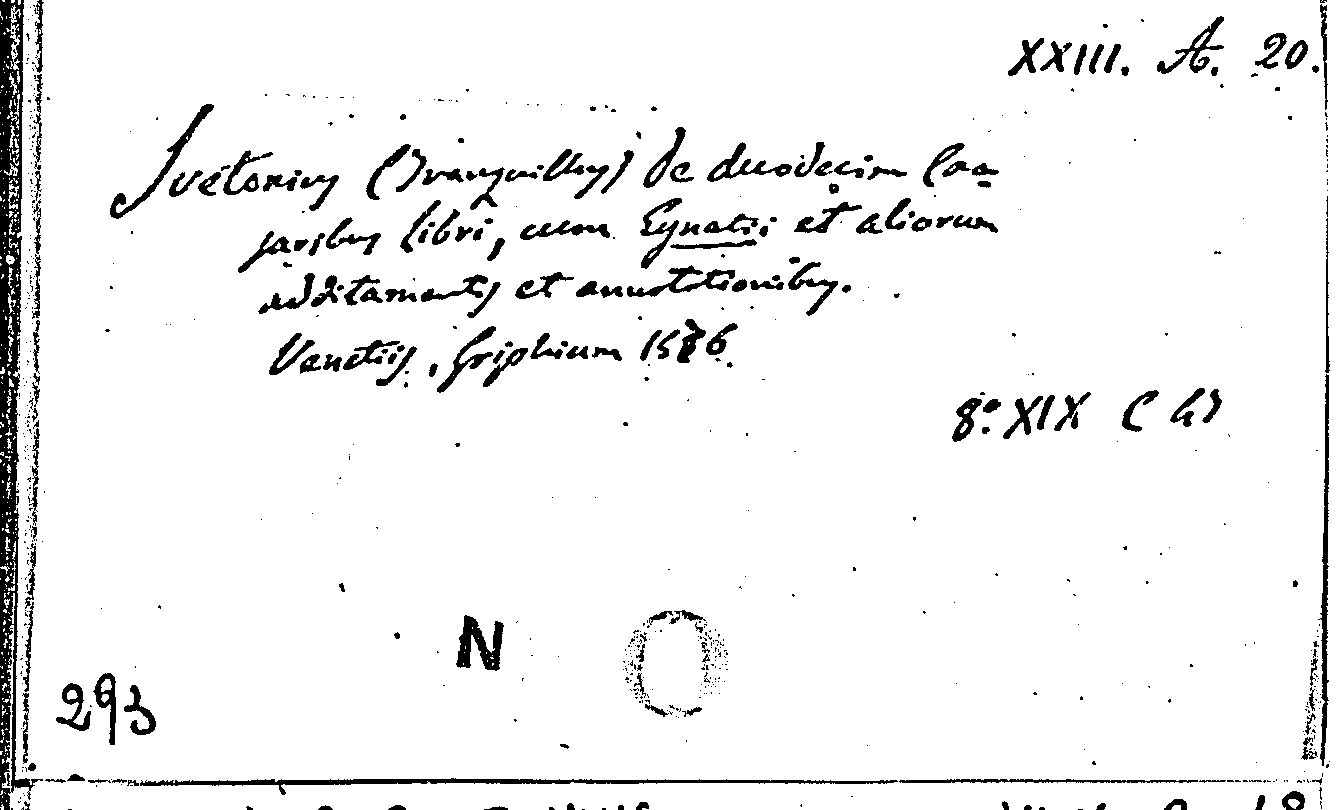 XXIII. A. 20.
Svetonius (Tranquillus) De duodecim Cae-
saribus libri, cum Egnatii et aliorum
additamentis et annotationibus.
Venetiis, Griphium 1576.
8.° XIX C
N O
293